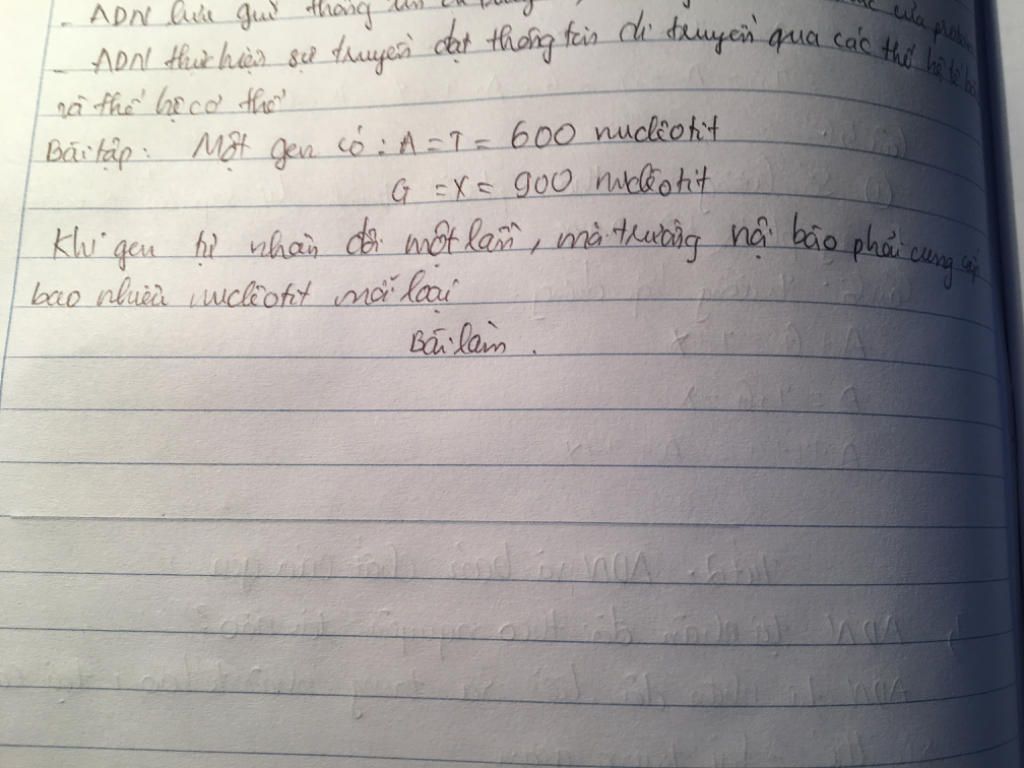 - ADN lưu giữ thông tin
- ADN thực hiện sự truyền đạt thông tin di truyền qua các thế hệ tế bào
và thế hệ cơ thể
Bài tập: Một gen có: A = T = 600 nuclêôtit
G = X = 900 nuclêôtit
Khi gen tự nhân đôi một lần, môi trường nội bào phải cung cấp
bao nhiêu nuclêôtit mỗi loại
Bài làm.